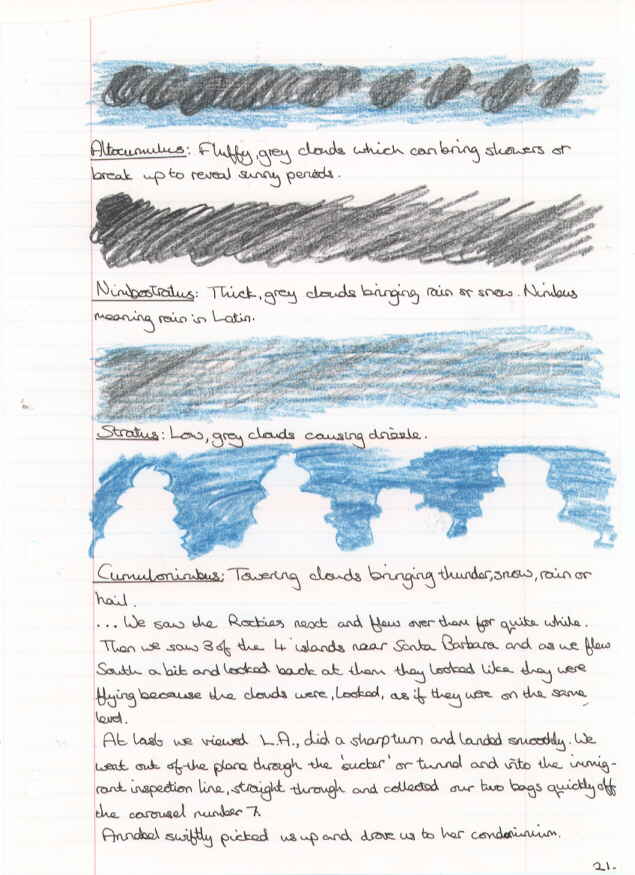 Altocumulus: Fluffy, grey clouds which can bring showers or
break up to reveal sunny periods.
Nimbostratus: Thick, grey clouds bringing rain or snow. Nimbus
meaning rain in Latin.
Stratus: Low, grey clouds causing drizzle.
Cumulonimbus: Towering clouds bringing thunder, snow, rain or
hail.
... We saw the Rockies next and flew over them for quite while.
Then we saw 3 of the 4 islands near Santa Barbara and as we flew
South a bit and looked back at them they looked like they were
flying because the clouds were, looked, as if they were on the same
level.
At last we viewed L.A., did a sharp turn and landed smoothly. We
went out of the plane through the 'sucker' or tunnel and into the immig-
rant inspection line, straight through and collected our two bags quickly off
the carousel number 7.
Annabel swiftly picked us up and drove us to her condominium.
21.